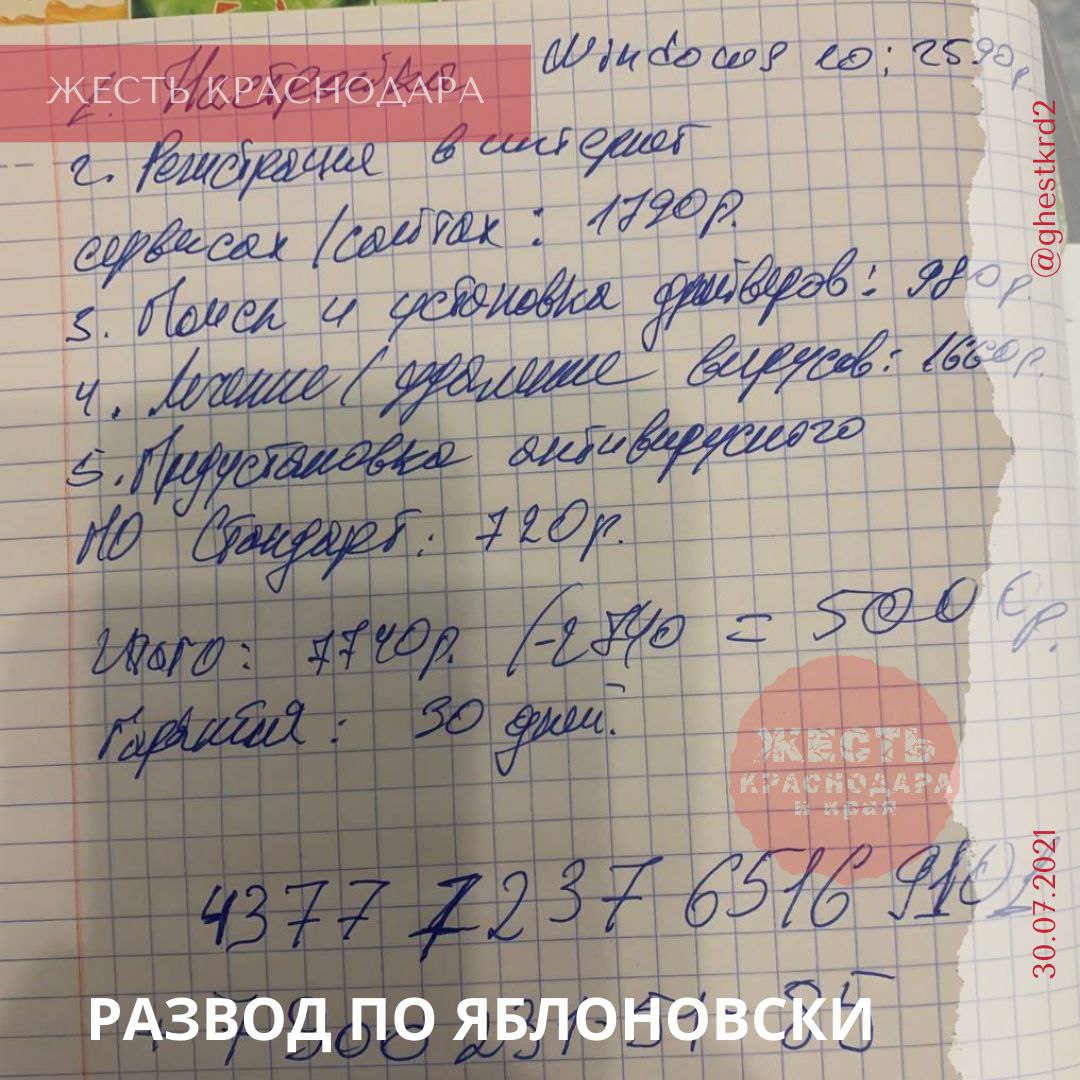 1. Настройка Windows 10: 2590р.
ЖЕСТЬ КРАСНОДАРА
2. Регистрация в интернет
сервисах/сайтах: 1790р.
3. Поиск и установка драйверов: 980р.
4. Лечение/удаление вирусов: 1660р.
5. Предустановка антивирусного
ПО Стандарт: 720р.
Итого: 7740р. (-2740 = 5000р.
Гарантия: 30 дней.
ЖЕСТЬ
КРАСНОДАРА
и края
4377 7237 6516 9102
РАЗВОД ПО ЯБЛОНОВСКИ
@ghestkrd2
30.07.2021